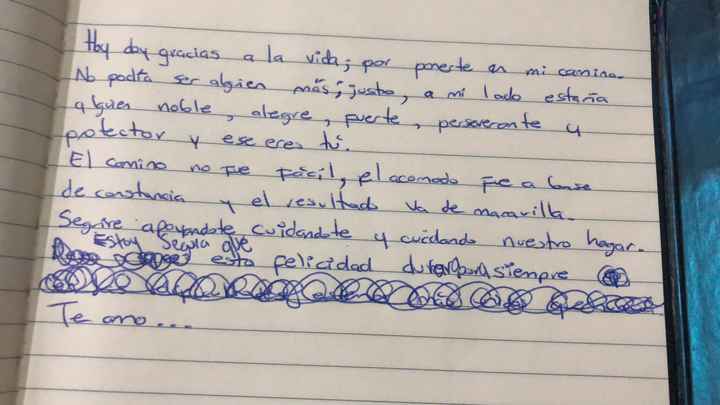 Hoy doy gracias a la vida; por ponerte en mi camino.
No podía ser alguien más; justo, a mi lado estaría
alguien noble, alegre, fuerte, perseverante y
protector y ese eres tú.
El camino no fue fácil, el acomodo fue a base
de constancia y el resultado va de maravilla.
Seguire apoyandote, cuidandote y cuidando nuestro hogar.
Estoy Segura que
esta felicidad durará para siempre
Te amo...